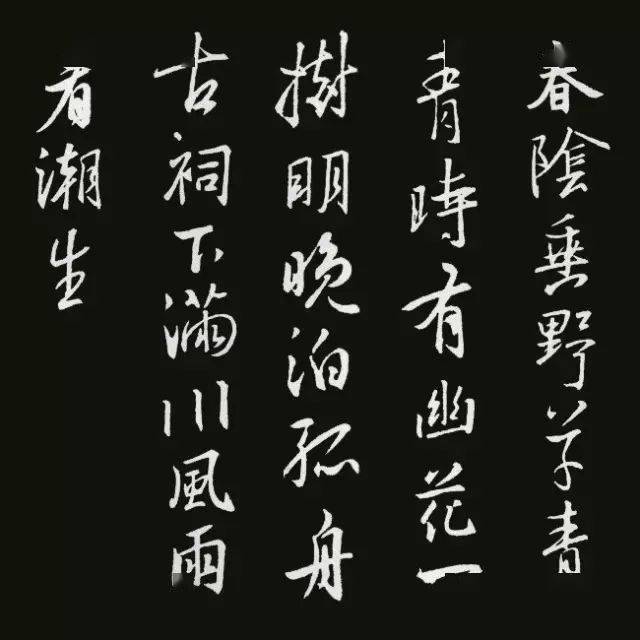 春陰垂野草青
青時有幽花一
樹明晚泊孤舟
古祠下滿川風雨
看潮生